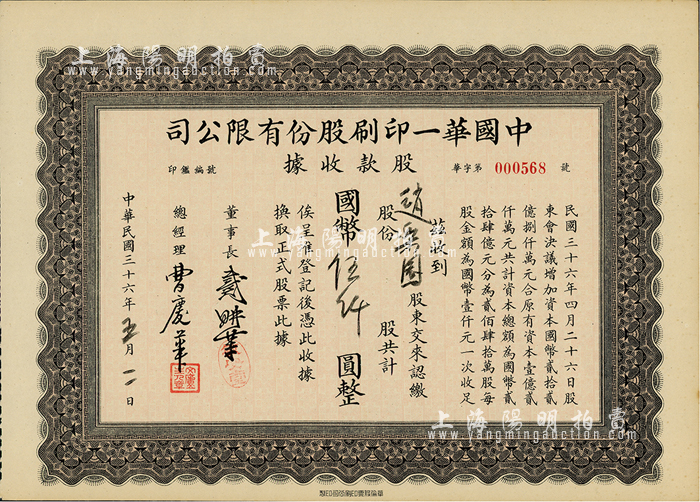 上海陽明拍賣
www.yangmingauction.com
司公限有份股刷印一華國中
據收款股
華字第 000568 號
印鑑編號
民國三十六年四月二十六日股
東會決議增加資本國幣貳拾貳
億捌仟萬元合原有資本壹億貳
仟萬元共計資本總額為國幣貳
拾肆億元分為貳佰肆拾萬股每
股金額為國幣壹仟元一次收足
茲收到
股東交來認繳
股份 股共計
國幣伍仟 圓整
俟呈准登記後憑此收據
換取正式股票此據
董事長
總經理 曹慶華
中華民國三十六年五月一日
上海陽明拍賣
www.yangmingauction.com
上海陽明拍賣
www.yangmingauction.com